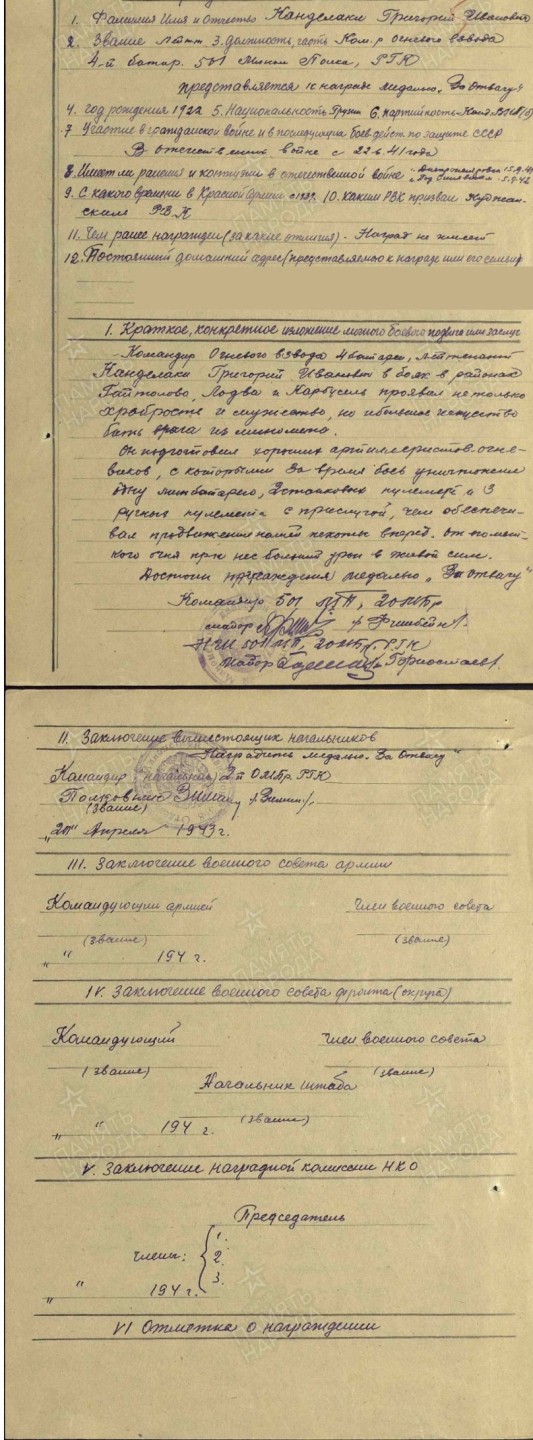 1. Фамилия Имя и Отчество Канделаки Григорий Иванович
2. Звание Л-т 3. должность, часть Ком-р огневого взвода
4-й батар. 501 Мином Полка, РГК
представляется к награде медалью „За отвагу"
4. год рождения 1922 5. Национальность Грузин 6. партийность Канд. ВКП(б)
7 Участие в гражданской войне и в последующих боев. действ. по защите СССР
В отечественной войне с 22.6.41 года
8. Имеет ли ранения и контузии в отечественной войне
9. С какого времени в Красной Армии с 1939. 10. каким РВК призван
ским РВК
11. Чем ранее награжден (за какие отличия) - Наград не имеет
12. Постоянный домашний адрес (представляемого к награде или его семьи)
1. Краткое, конкретное изложение личного боевого подвига или заслуг
Командир Огневого взвода 4 батареи, лейтенант
Канделаки Григорий Иванович в боях в районах
Гайтолово, Лодва и Карбусель проявил не только
храбрость и мужество, но и большое искусство
бить врага из миномета.
Он подготовил хороших артиллеристов-огне-
виков, с которыми за время боев уничтожено
одну минбатарею, 2 станковых пулемета и 3
ручных пулемета с прислугой, чем обеспечи-
вал продвижение нашей пехоты вперед. От
кого огня понес больший урон в живой силе.
Достоин награждения медалью „За отвагу"
Командир 501 МП, 20 МБр
майор
НШ 501 МП, 20 МБр. РГК
Майор Горностаев
II. Заключение вышестоящих начальников
Наградить медалью „За Отвагу"
Командир (начальник) РГК
Полковник
(звание)
Апреля 1943 г.
III. Заключение военного совета армии
Командующий армией Член военного совета
(звание) (звание)
„ " 194 г.
IV. Заключение военного совета фронта (округа)
Командующий Член военного совета
(звание) (звание)
Начальник штаба
(звание)
„ " 194 г.
V. Заключение наградной комиссии НКО
Председатель
члены: 1.
2.
3.
„ " 194 г.
VI Отметка о награждении
ПАМЯТЬ НАРОДА